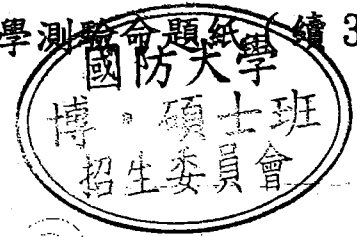 學測驗命題紙(續3
國防大學
博・碩士班
招生委員會